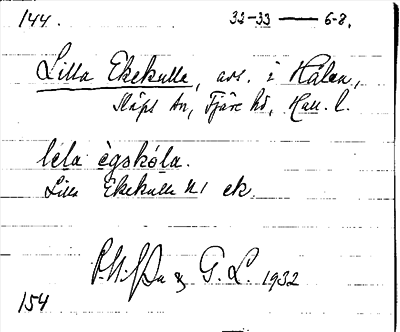 144. 32-33 — 6-8.
Lilla Ekekulle, avs. i Hålan,
Släps sn, Fjäre hd, Hall. l.
lɩla ègskōla.
Lilla Ekekulle N:1 ek.
& G. L. 1932
154